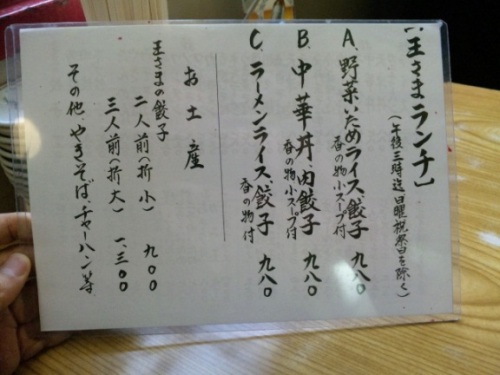 【王さまランチ】
(午後三時迄日曜祝祭日を除く)
A. 野菜いためライス、餃子 九八〇
香の物小スープ付
B. 中華丼、肉餃子 九八〇
香の物小スープ付
C. ラーメンライス、餃子 九八〇
香の物付
お土産
王さまの餃子
二人前(折小) 九〇〇
三人前(折大) 一、三〇〇
その他、やきそば、チャーハン等